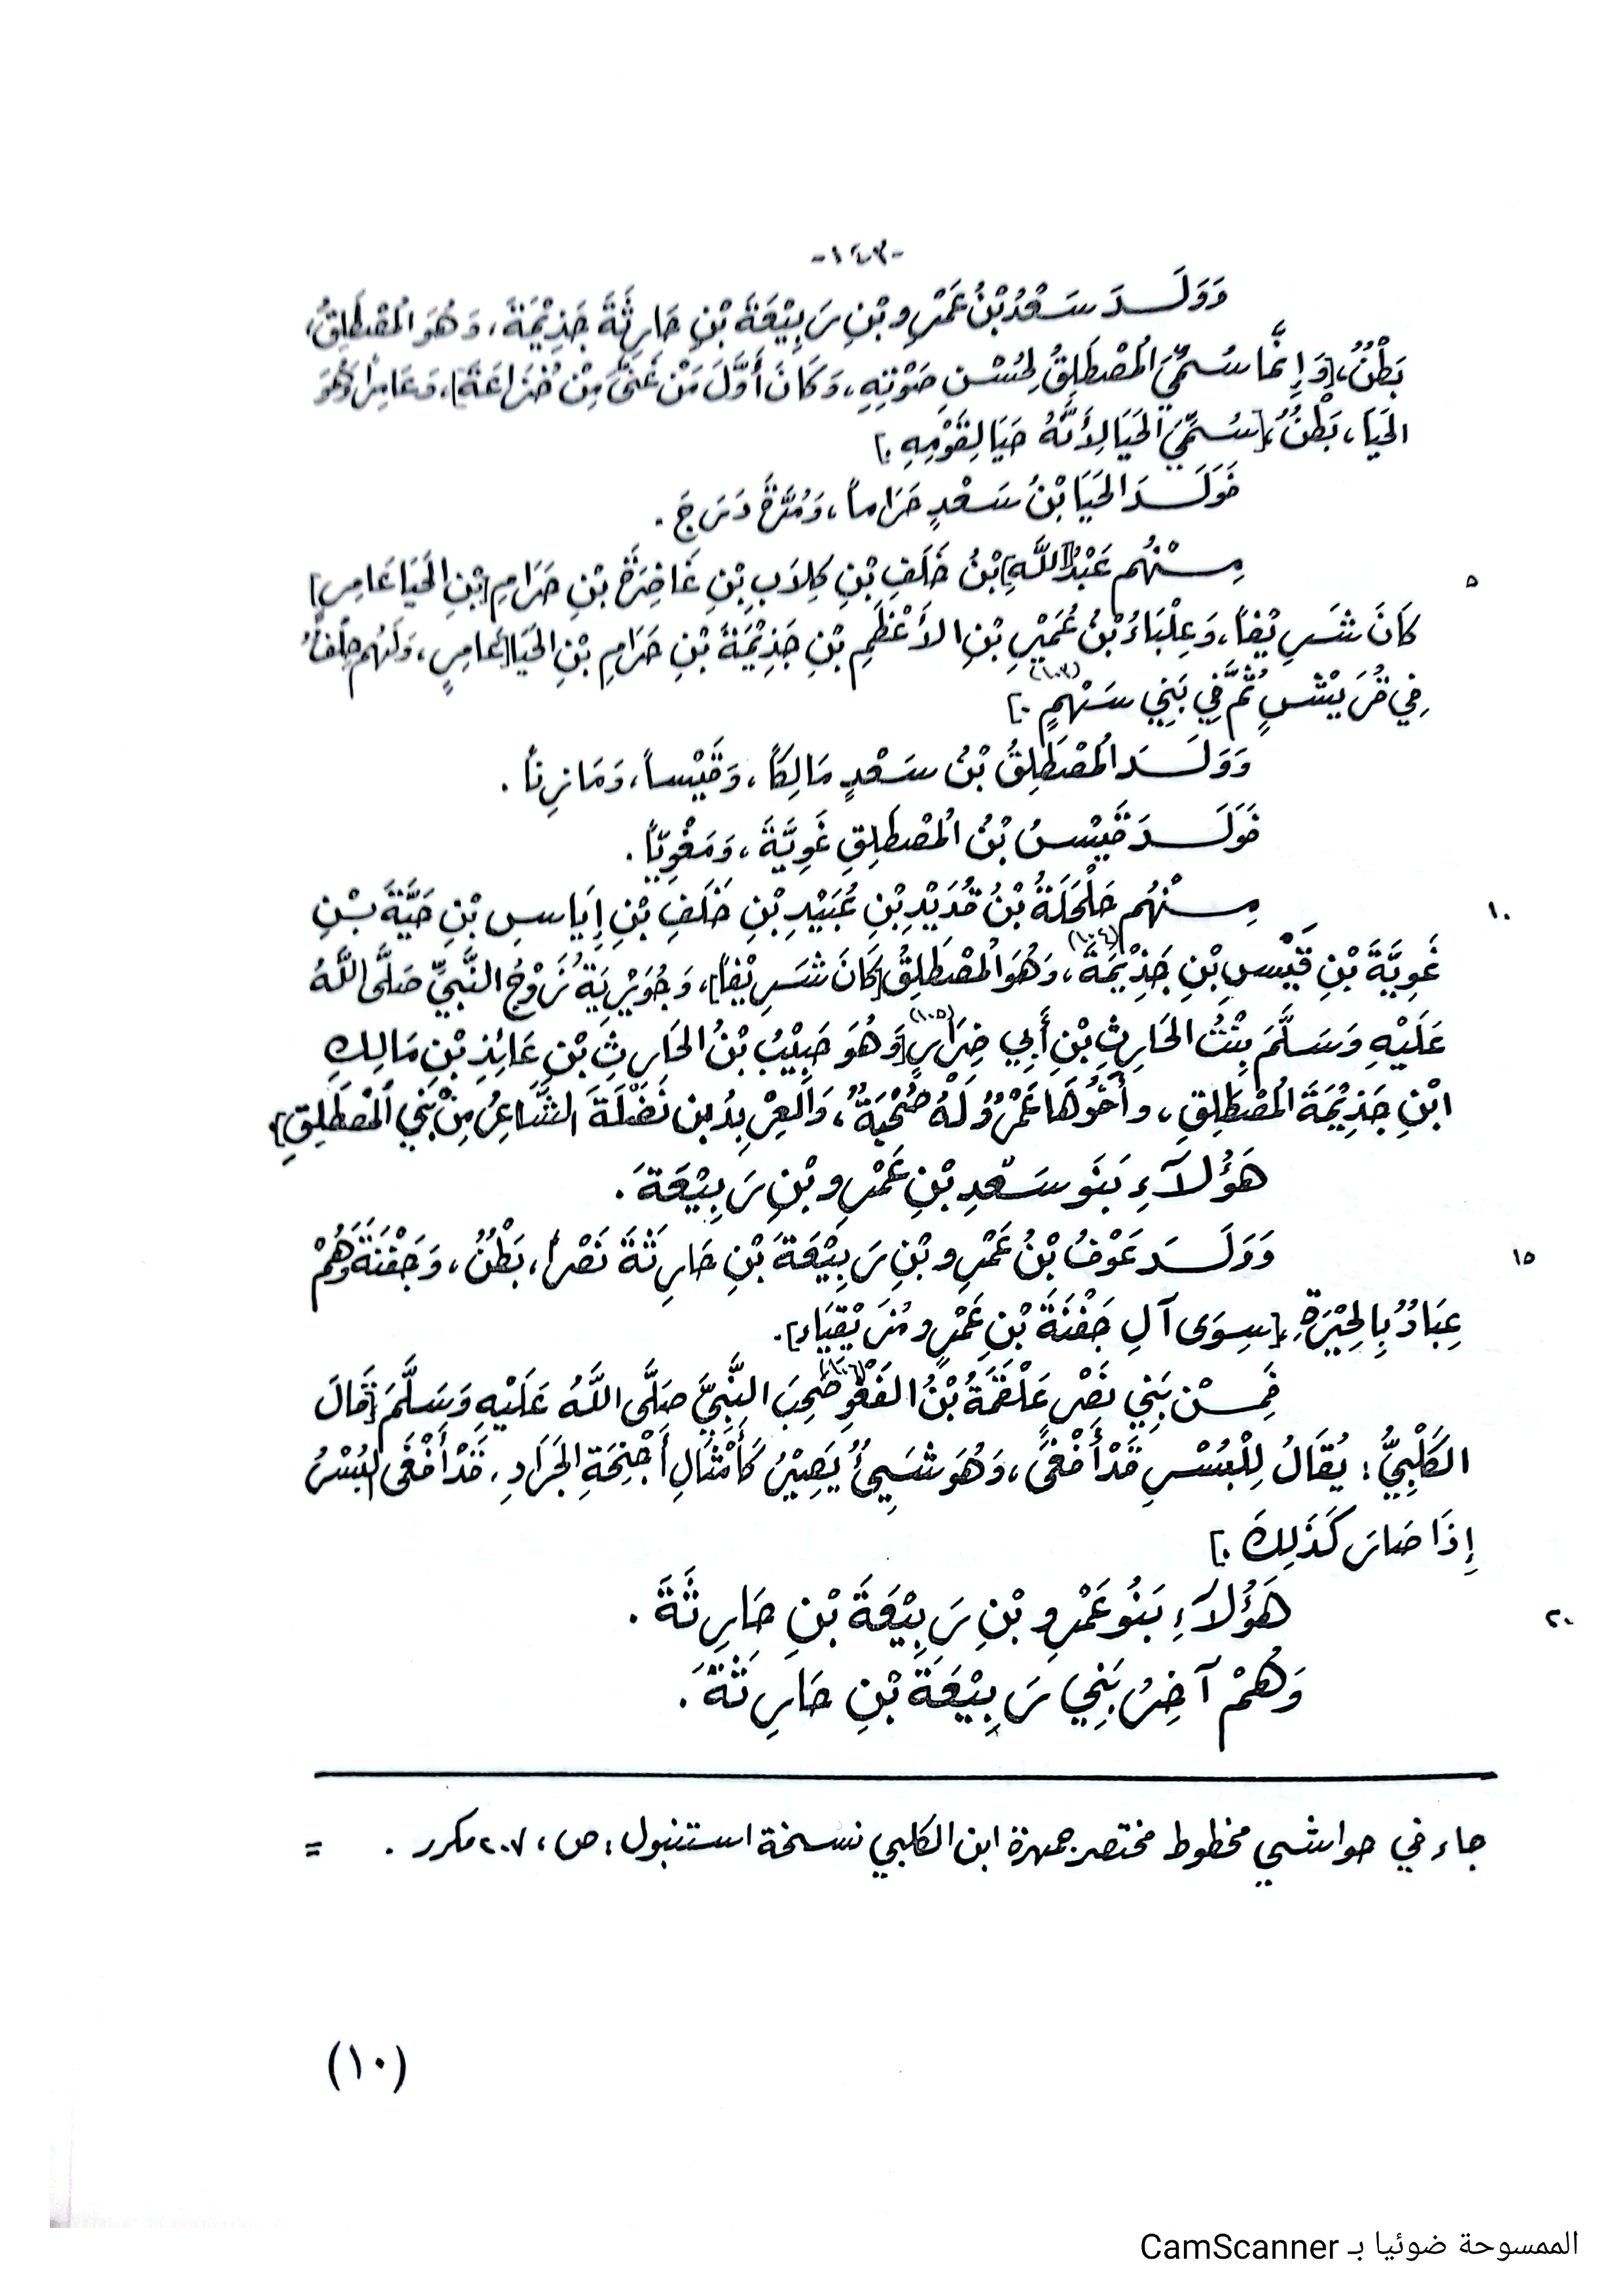 -١٤٣-
وَوَلَدَ سَعْدُ بْنُ عَمْرِو بْنِ رَبِيْعَةَ بْنِ حَارِثَةَ جَذِيْمَةَ، وَهُوَ الْمُصْطَلِقُ،
بَطْنٌ، [وَإِنَّمَا سُمِّيَ الْمُصْطَلِقُ لِحُسْنِ صَوْتِهِ، وَكَانَ أَوَّلَ مَنْ غَنَّى مِنْ خُزَاعَةَ]، وَعَامِراً وَهُوَ
الحَيَا، بَطْنٌ، [سُمِّيَ الحَيَا لِأَنَّهُ حَيَا لِقَوْمِهِ.]
فَوَلَدَ الحَيَا بْنُ سَعْدٍ حَرَاماً، وَمُرَّةَ دَرَجَ.
٥
مِنْهُم عَبْدُ [اللَّهِ] بْنُ خَلَفِ بْنِ كِلاَبِ بْنِ غَاضِرَةَ بْنِ حَرَامِ [بْنِ الحَيَا عَامِرٍ]
كَانَ شَرِيْفاً، وَعِلْبَاءُ بْنُ عُمَيْرِ بْنِ الأَعْظَمِ بْنِ جَذِيْمَةَ بْنِ حَرَامِ بْنِ الحَيَا [عَامِرٍ، وَلَهُم حِلْفٌ
فِي قُرَيْشٍ ثُمَّ فِي بَنِي سَهْمٍ (١٠٣).]
وَوَلَدَ الْمُصْطَلِقُ بْنُ سَعْدٍ مَالِكاً، وَقَيْساً، وَمَازِناً.
فَوَلَدَ قَيْسُ بْنُ الْمُصْطَلِقِ غَوِيَّةَ، وَمَغْوِيّاً.
١٠
مِنْهُم حَلْحَلَةُ بْنُ قُدَيْدِ بْنِ عُبَيْدِ بْنِ خَلَفِ بْنِ إِيَاسِ بْنِ حَيَّةَ بْنِ
غَوِيَّةَ بْنِ قَيْسِ بْنِ جَذِيْمَةَ (١٠٤)، وَهُوَ الْمُصْطَلِقُ [كَانَ شَرِيْفاً]، وَجُوَيْرِيَةُ زَوْجُ النَّبِيِّ صَلَّى اللَّهُ
عَلَيْهِ وَسَلَّمَ بِنْتُ الحَارِثِ بْنِ أَبِي ضِرَارٍ (١٠٥) [وَهُوَ حَبِيْبُ بْنُ الحَارِثِ بْنِ عَائِذِ بْنِ مَالِكِ
ابْنِ جَذِيْمَةَ الْمُصْطَلِقِ، وأَخُوهَا عَمْرٌو لَهُ صُحْبَةٌ، وَالعِرْبِدُ بن نَضْلَةَ الشَّاعِرُ مِنْ بَنِي الْمُصْطَلِقِ].
هَؤُلَآءِ بَنُو سَعْدِ بْنِ عَمْرِو بْنِ رَبِيْعَةَ.
١٥
وَوَلَدَ عَوْفُ بْنُ عَمْرِو بْنِ رَبِيْعَةَ بْنِ حَارِثَةَ نَصْراً، بَطْنٌ، وَجَفْنَةَ وَهُمْ
عِبَادٌ بِالحِيْرَةِ، [سِوَى آلِ جَفْنَةَ بْنِ عَمْرٍو مُزَيْقِيَاءَ].
فَمِنْ بَنِي نَصْرٍ عَلْقَمَةُ بْنُ الفَغْوِ (١٠٦) صَحِبَ النَّبِيَّ صَلَّى اللَّهُ عَلَيْهِ وَسَلَّمَ [قَالَ
الكَلْبِيُّ: يُقَالُ لِلْبُسْرِ قَدْ أَفْغَى، وَهُوَ شَيئٌ يَصِيْرُ كَأَمْثَالِ أَجْنِحَةِ الجَرَادِ. قَدْ أَفْغَى البُسْرُ
إِذَا صَارَ كَذَلِكَ.]
٢٠
هَؤُلَآءِ بَنُو عَمْرِو بْنِ رَبِيْعَةَ بْنِ حَارِثَةَ.
وَهُمْ آخِرُ بَنِي رَبِيْعَةَ بْنِ حَارِثَةَ.
جاء في حواشي مخطوط مختصر جمهرة ابن الكلبي نسخة استنبول، ص، ٢٠٧ مكرر . =
(١٠)
الممسوحة ضوئيا بـ CamScanner